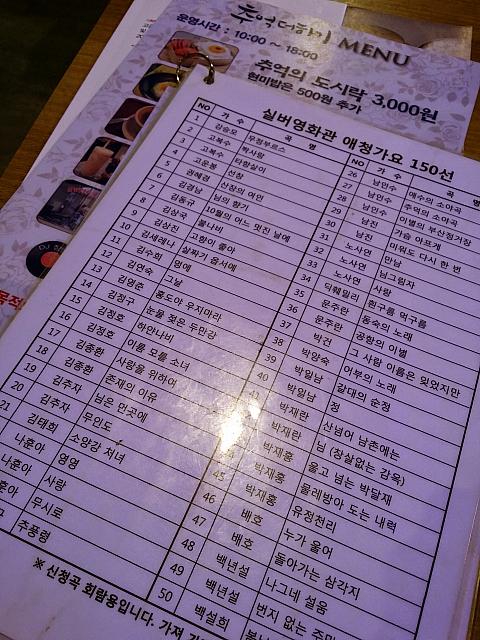 추억더하기 MENU
운영시간 : 10:00 ~ 18:00
추억의 도시락 3,000원
현미밥은 500원 추가
실버영화관 애청가요 150선
NO 가 수 곡 명
1 김승모 무정부르스
2 고복수 짝사랑
3 고복수 타향살이
4 고운봉 선창
5 권혜경 산장의 여인
6 김경남 님의 향기
7 김동규 10월의 어느 멋진 날에
8 김상국 불나비
9 김상진 고향이 좋아
10 김세레나 살짜기 옵서예
11 김수희 멍에
12 김연숙 그날
13 김영춘 홍도야 우지마라
14 김정구 눈물 젖은 두만강
15 김정호 하얀나비
16 김정호 이름 모를 소녀
17 김종환 사랑을 위하여
18 김종환 존재의 이유
19 김추자 님은 먼곳에
20 김추자 무인도
21 김태희 소양강 처녀
나훈아 영영
나훈아 사랑
훈아 무시로
추풍령
NO 가 수 곡 명
26 남인수 애수의 소야곡
27 남인수 추억의 소야곡
28 남인수 이별의 부산정거장
29 남진 가슴 아프게
30 남진 미워도 다시 한 번
31 노사연 만남
32 노사연 님그림자
33 노사연 사랑
34 딕훼밀리 흰구름 먹구름
35 문주란 동숙의 노래
36 문주란 공항의 이별
37 박건 그 사람 이름은 잊었지만
38 박양숙 어부의 노래
39 박일남 갈대의 순정
40 박일남 정
박재란 산넘어 남촌에는
박재란 님 (창살없는 감옥)
박재홍 울고 넘는 박달재
박재홍 물레방아 도는 내력
45 박재홍 유정천리
46 배호 누가 울어
47 배호 돌아가는 삼각지
48 백년설 나그네 설움
49 백년설 번지 없는 주막
50 백설희
※ 신청곡 회람용입니다. 가져